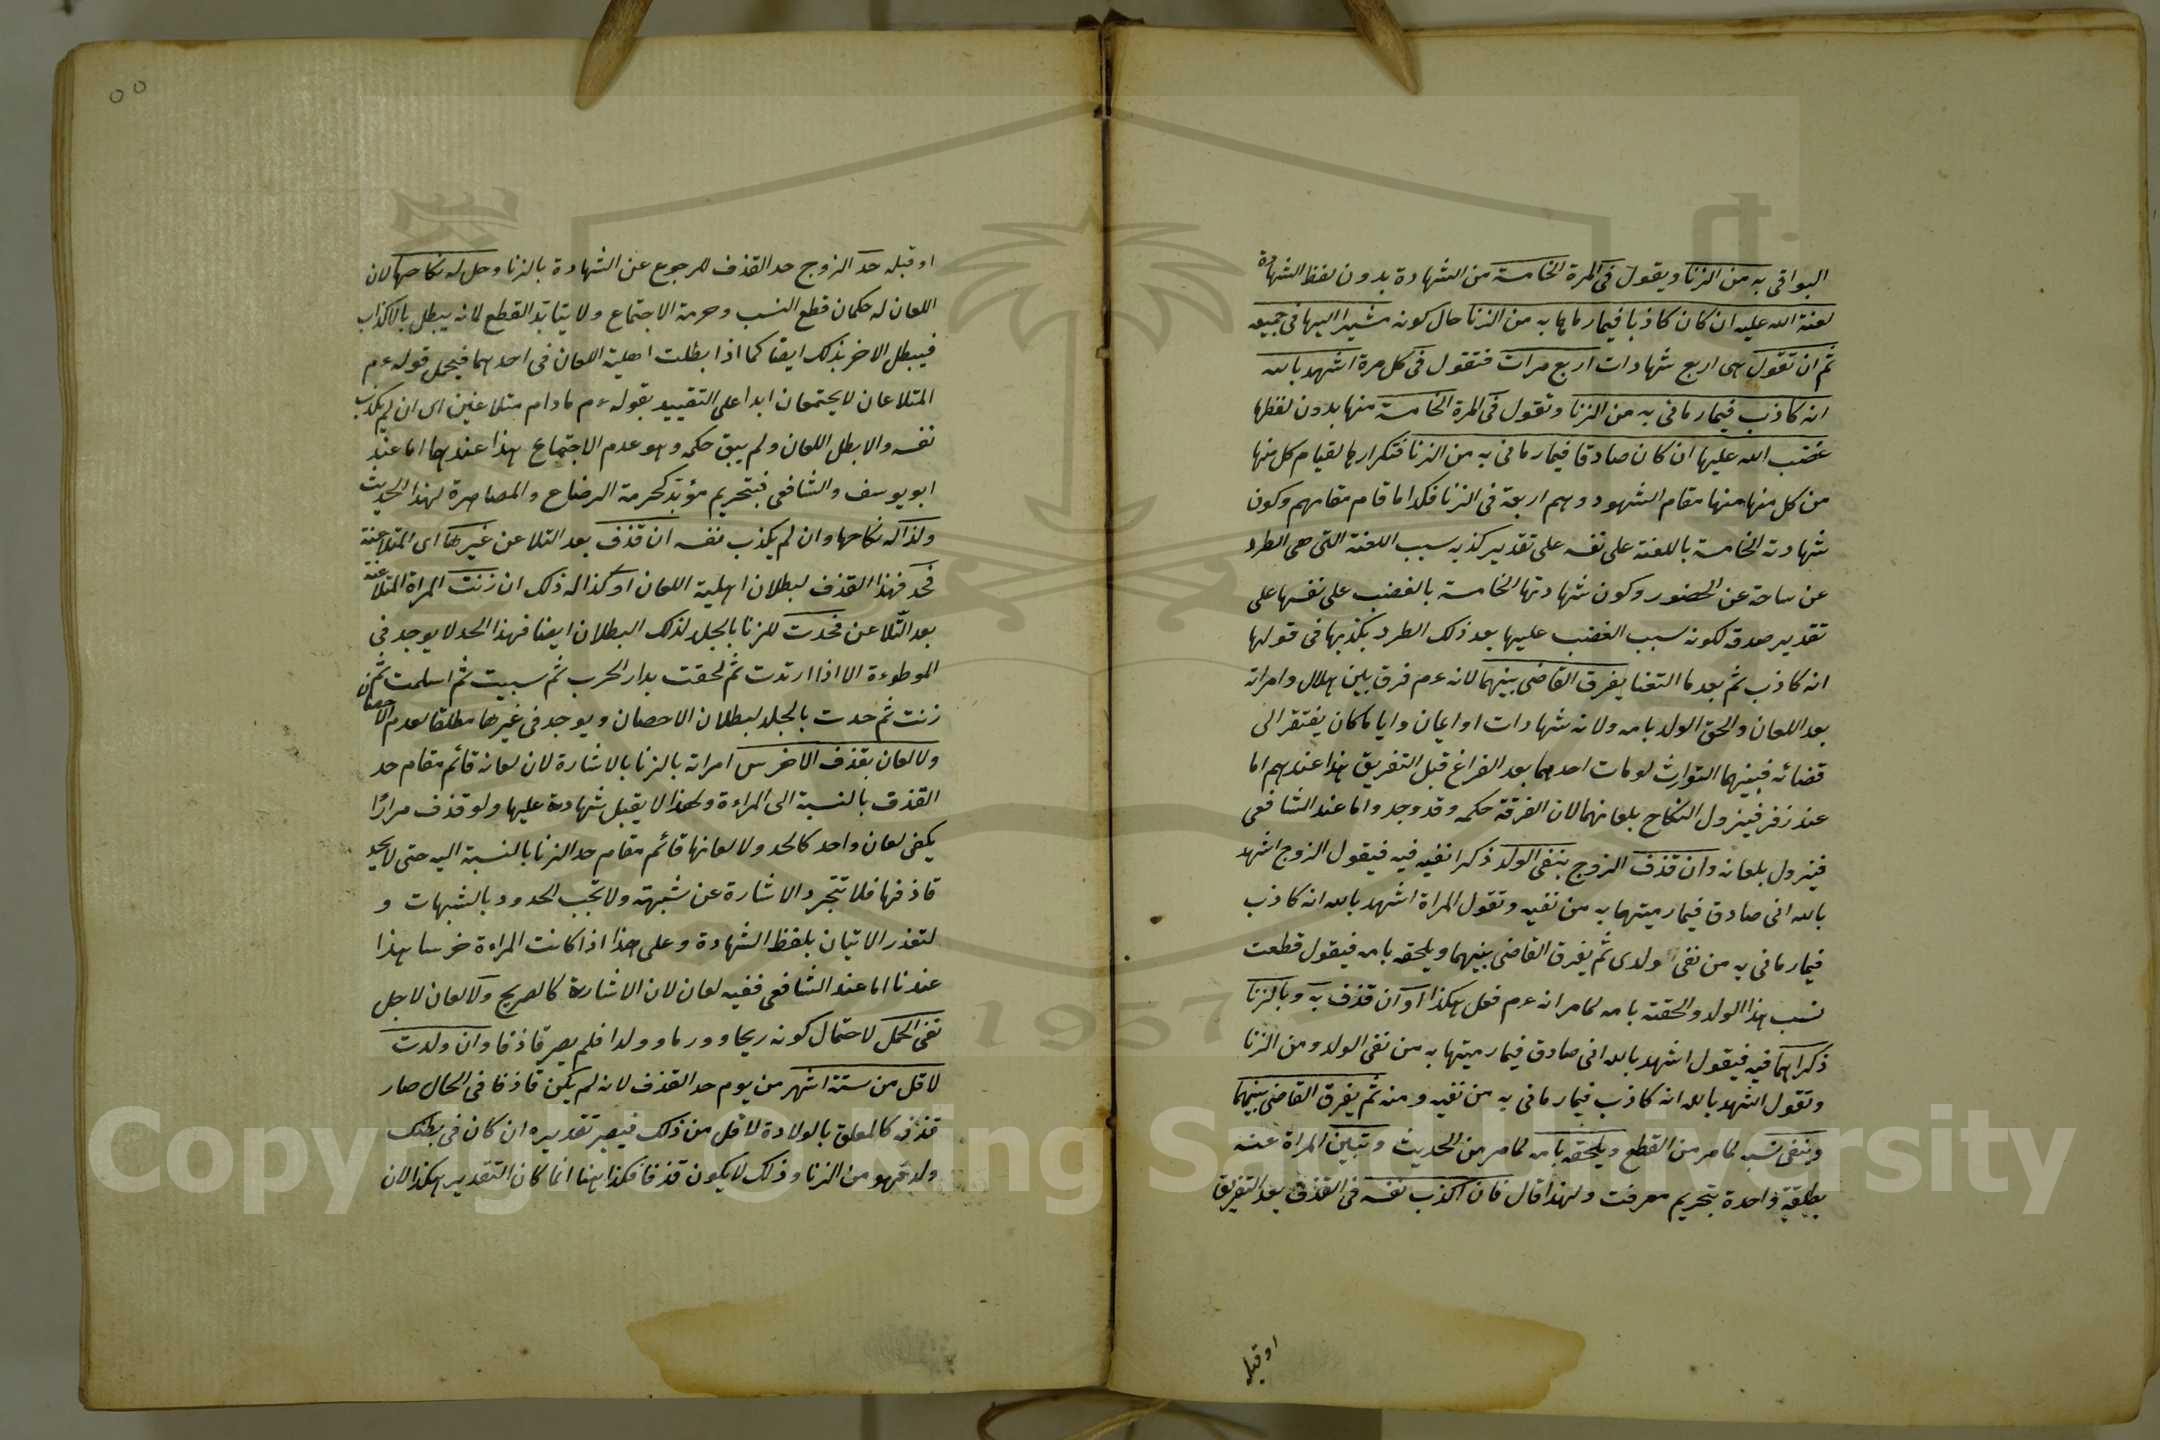 البواقى به من الزنا ويقول فى المرة الخامسة من الشهادة بدون لفظ الشهادة
لعنة الله عليه ان كان كاذبا فيما رماها به من الزنا حال كونه مشيرا اليها فى جميعه
ثم ان تقول هى اربع شهادات اربع مرات فتقول فى كل مرة اشهد بالله
انه كاذب فيما رمانى به من الزنا وتقول فى المرة الخامسة منها بدون لفظها
غضب الله عليها ان كان صادقا فيما رمانى به من الزنا فتكرارها لقيام كل منها
من كل منهما منها مقام الشهود وهم اربعة فى الزنا فكذا ما قام مقامهم وكون
شهادته الخامسة باللعنة على نفسه على تقدير كذبه سبب اللعنة التى هى الطرد
عن ساحة عن الحضور وكون شهادتها الخامسة بالغضب على نفسها على
تقدير صدقه لكونه سبب الغضب عليها بعد ذلك الطرد بكذبها فى قولها
انه كاذب ثم بعد ما التعنا يفرق القاضى بينهما لانه عم فرق بين هلال وامراته
بعد اللعان والحق الولد بامه ولانه شهادات او ايمان وايا ما كان يفتقر الى
قضائه فبينهما التوارث لو مات احدهما بعد الفراغ قبل التفريق هذا عندهم اما
عند زفر فيزول النكاح بلعانهما لان الفرقة حكمه وقد وجد واما عند الشافعى
فيزول بلعانه وان قذف الزوج بنفى الولد ذكرا نفيه فيه فيقول الزوج اشهد
بالله انى صادق فيما رميتها به من نفيه وتقول المراة اشهد بالله انه كاذب
فيما رمانى به من نفى ولدى ثم يفرق القاضى بينهما ويلحقه بامه فيقول قطعت
نسب هذا الولد والحقته بامه لما مر انه عم فعل هكذا او ان قذف به وبالزنا
ذكراهما فيه فيقول اشهد بالله انى صادق فيما رميتها به من نفى الولد ومن الزنا
وتقول اشهد بالله انه كاذب فيما رمانى به من نفيه ومنه ثم يفرق القاضى بينهما
وينفى نسبه لما مر من القطع ويلحقه بامه لما مر من الحديث وتبين المراة عنه
بطلقة واحدة بتحريم معرفت ولهذا قال فان اكذب نفسه فى القذف بعد التفريق
او قبله
٥٥
او قبله حد الزوج حد القذف للرجوع عن الشهادة بالزنا وحل له نكاحها لان
اللعان له حكمان قطع النسب وحرمة الاجتماع ولا يتابد القطع لانه يبطل بالاكذاب
فيبطل الاخر بذلك ايضا كما اذا بطلت اهلية اللعان فى احدهما فيحمل قوله عم
المتلاعنان لا يجتمعان ابدا على التقييد بقوله عم ما دام متلاعنين اى ان لم يكذب
نفسه والا بطل اللعان ولم يبق حكمه وهو عدم الاجتماع هذا عندهما اما عند
ابو يوسف والشافعى فبتحريم مؤبد كحرمة الرضاع والمصاهرة لهذا الحديث
ولذا له نكاحها وان لم يكذب نفسه ان قذف بعد التلاعن غيرها اى المتلاعنة
فحد فهذا القذف لبطلان اهلية اللعان او كذا له ذلك ان زنت المراة المتلاعنة
بعد التلاعن فحدت للزنا بالجلد لذلك البطلان ايضا فهذا الحد لا يوجد فى
الموطوءة الا اذا ارتدت ثم لحقت بدار الحرب ثم سبيت ثم اسلمت ثم
زنت ثم حدت بالجلد لبطلان الاحصان ويوجد فى غيرها مطلقا لعدم الاحصان
ولا لعان بقذف الاخرس امراته بالزنا بالاشارة لان لعانه قائم مقام حد
القذف بالنسبة الى المراءة ولهذا لا يقبل شهادته عليها ولو قذف مرارًا
يكفى لعان واحد كالحد ولا لعانها قائم مقام حد الزنا بالنسبة اليه حتى لا يحد
قاذفها فلا تتجرد الاشارة عن شبهة ولا تجب الحدود بالشبهات و
لتعذر الاتيان بلفظ الشهادة وعلى هذا اذا كانت المراءة خرسا هذا
عندنا اما عند الشافعى ففيه لعان لان الاشارة كالصريح ولا لعان لاجل
نفى الحمل لاحتمال كونه ريحا وورما وولدا فلم يصر قاذفا وان ولدت
لاقل من ستة اشهر من يوم حد القذف لانه لم يكن قاذفا فى الحال صار
قذفه كالمعلق بالولادة لاقل من ذلك فيصير تقديره ان كان فى بطنك
ولد فهو من الزنا وذلك لا يكون قذفا فكذا هنا انما كان التقدير هكذا لان
Copyright © King Saud University
1957